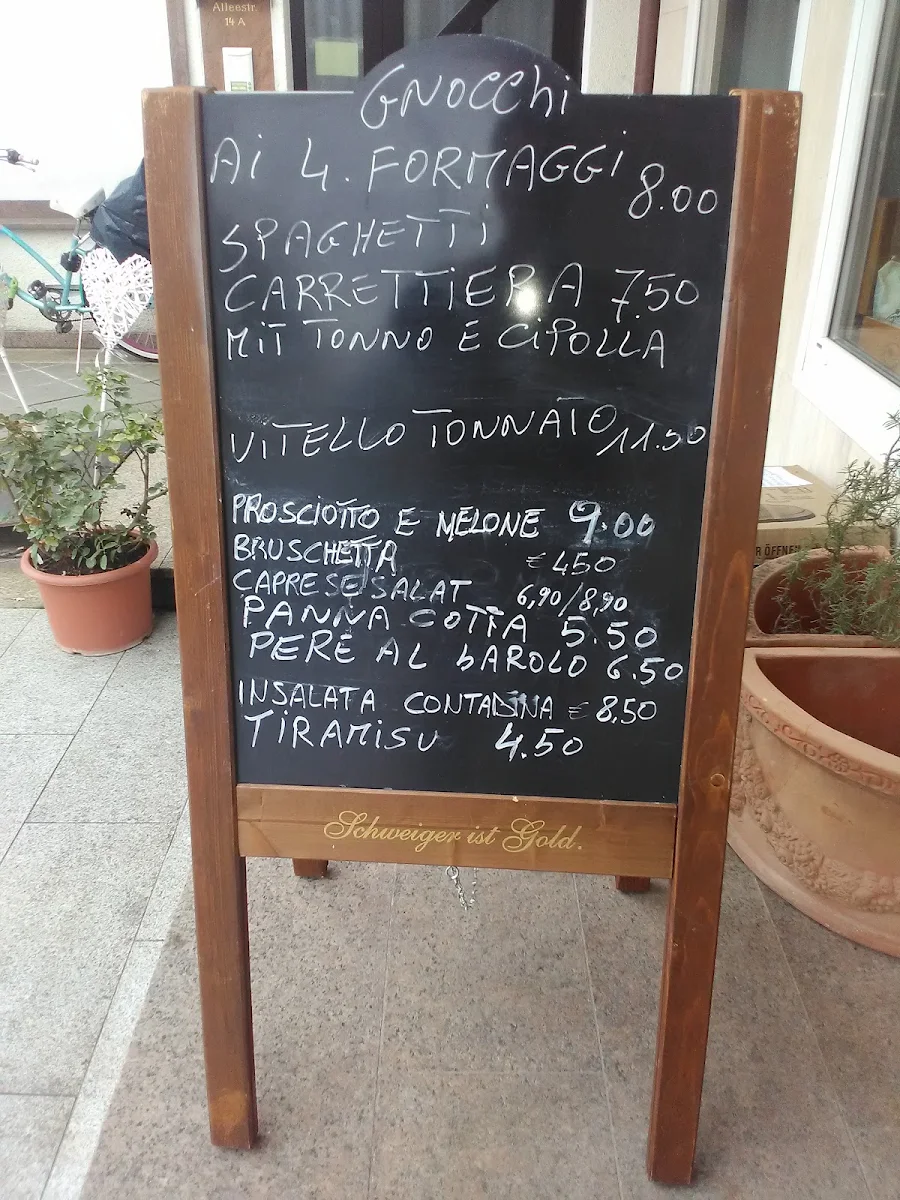 Alleestr.
14 A
GNOCCHi
Ai 4. FORMAGGi 8.00
SPAGHETTi
CARRETTiERA 7.50
MiT TONNO E CiPOLLA
ViTELLO TONNATO 11.50
PROSCIOTTO E MELONE 9.00
BRUSCHETTA € 450
CAPRESESALAT 6,90/8,90
PANNA COTTA 5.50
PERE AL bAROLO 6.50
INSALATA CONTADINA € 8,50
TIRAMiSU 4.50
Schweiger ist Gold.
ÖFFNEN